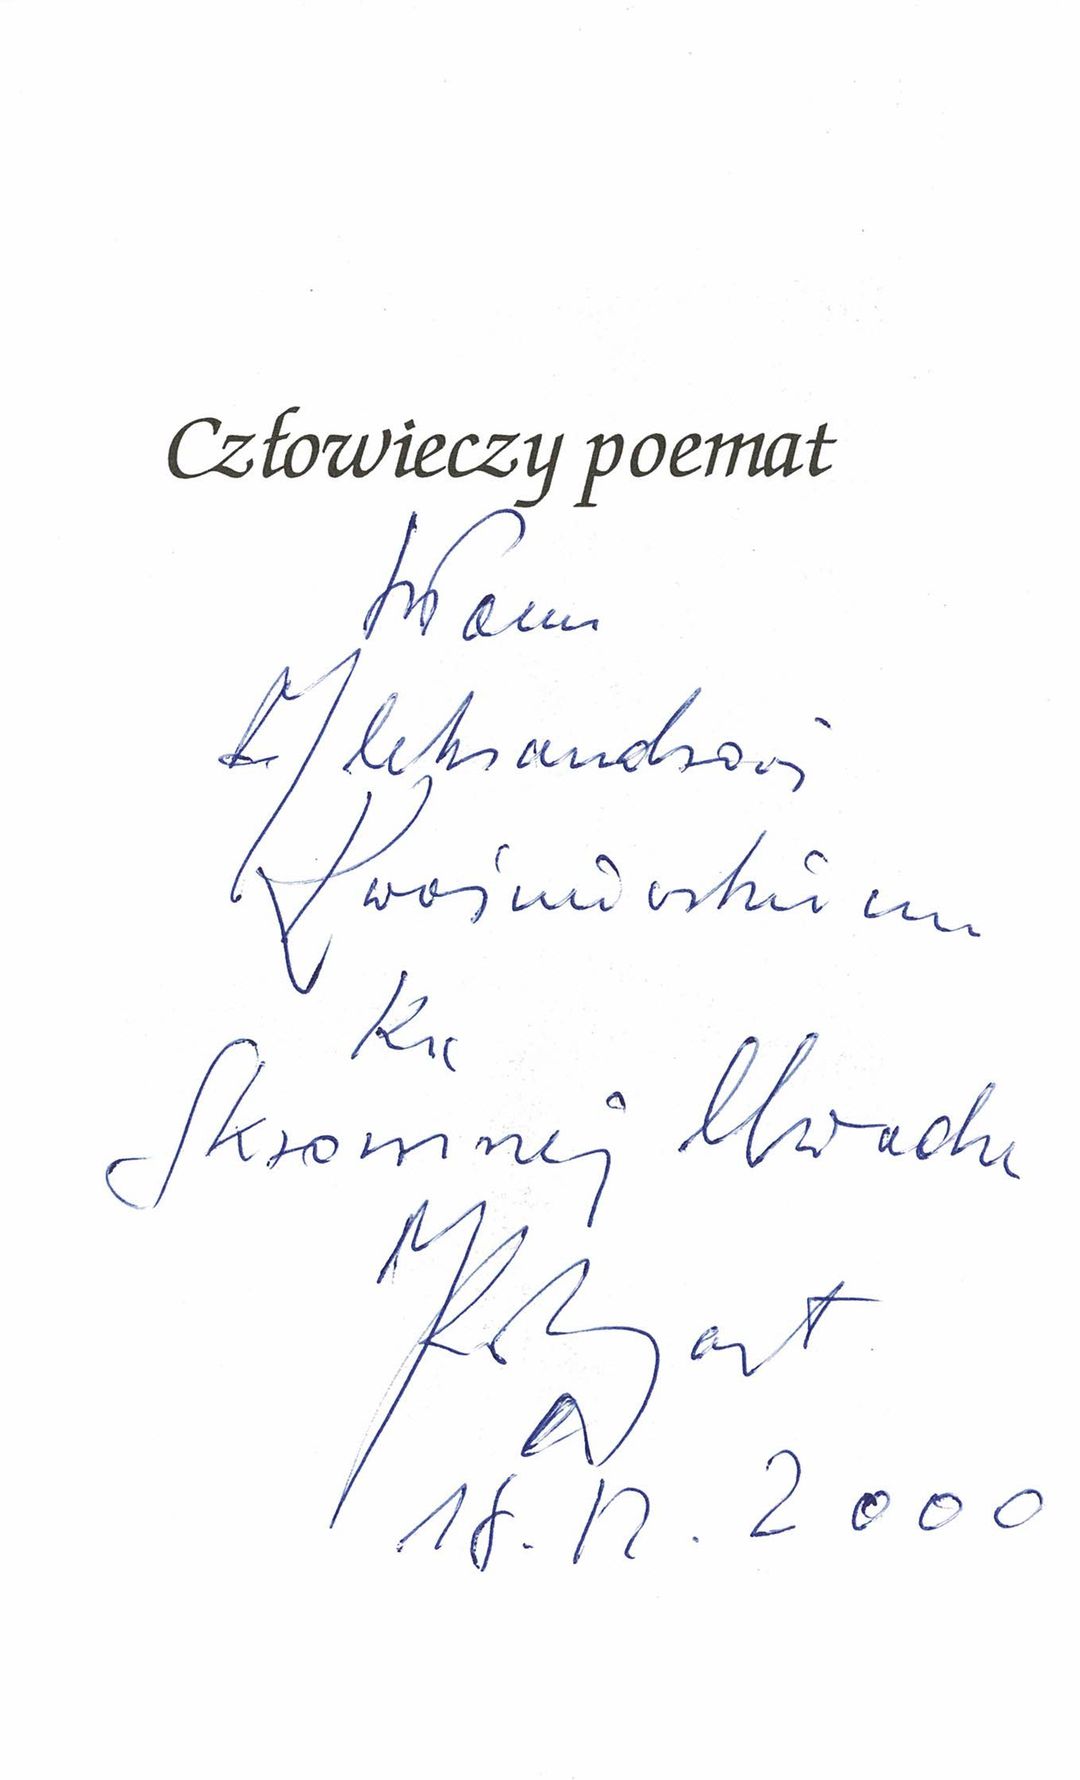 Człowieczy poemat
Panu
Aleksandrowi
Kwaśniewskiemu
Ku
Skromnej Uwadze
18. 12. 2000